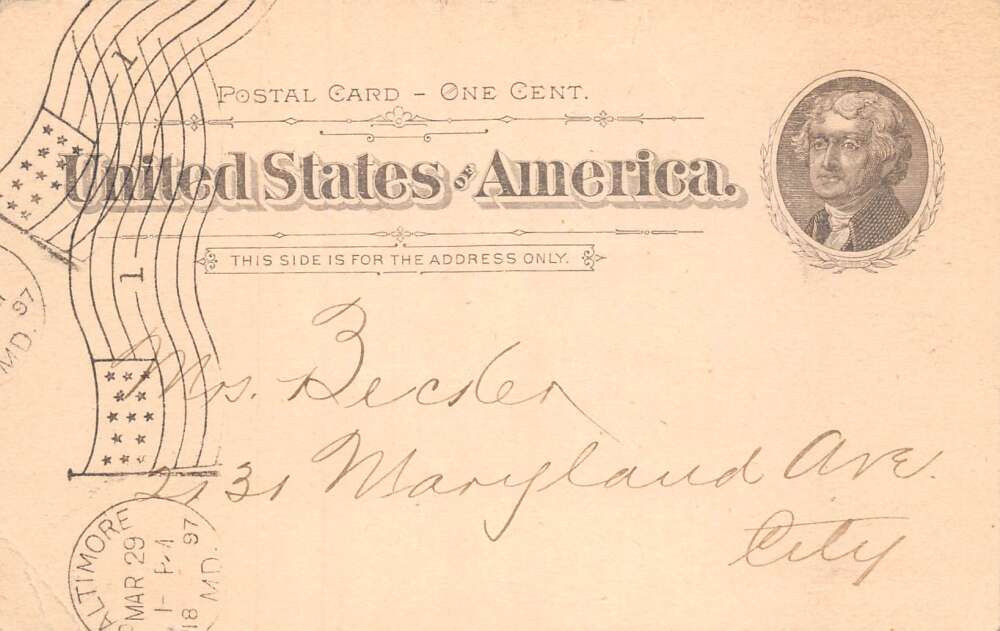 POSTAL CARD - ONE CENT.
United States OF America.
THIS SIDE IS FOR THE ADDRESS ONLY.
1
1
MD. 97
Mrs. Becker
2131 Maryland Ave.
City
BALTIMORE
MAR 29
1-
18 97
MD.